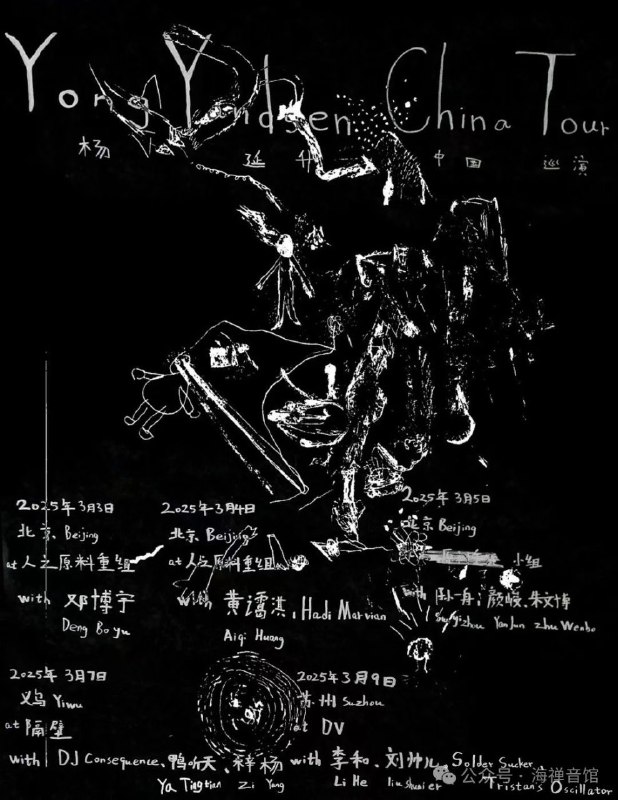 Yong Yandsen China Tour
杨 延升 中国 巡演
2025年3月3日
北京 Beijing
at 人之原料重组
with 邓博宇
Deng Bo yu
2025年3月4日
北京 Beijing
at 人之原料重组
with 黄 淇, Hadi Marvian
Aiqi Huang
2025年3月5日
北京 Beijing
小组
with 孙一舟, 颜峻, 朱文博
Sun yizhou Yan Jun Zhu Wenbo
2025年3月7日
义乌 Yiwu
at 隔壁
with DJ Consequence, 鸭听天, 梓杨
Ya Tingtian Zi Yang
2025年3月9日
苏州 Suzhou
at DV
with 李和, 刘帅儿, Solder Sucker,
Li He liu shuaier Tristan's Oscillator
公众号 · 海禅音馆